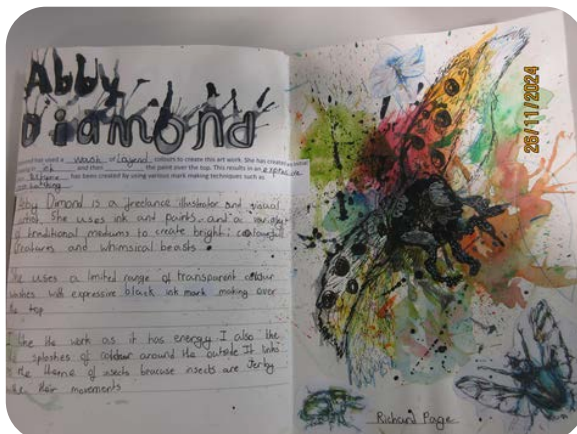 Abby
Diamond
has used a wash of layered colours to create this art work. She has created
ink and then the paint over the top. This results in an expressive
has been created by using various mark making techniques such as
Abby Dimond is a freelance illustrator and visual
artist. She uses ink and paints and a variety
of traditional mediums to create bright, colourful
creatures and whimsical beasts.
She uses a limited range of transparent colour
washes with expressive black ink mark making over
the top
I like the work as it has energy I also like
the splashes of colour around the outside It links
to the theme of insects because insects are Jerky
their movements
26/11/2024
Richard Page